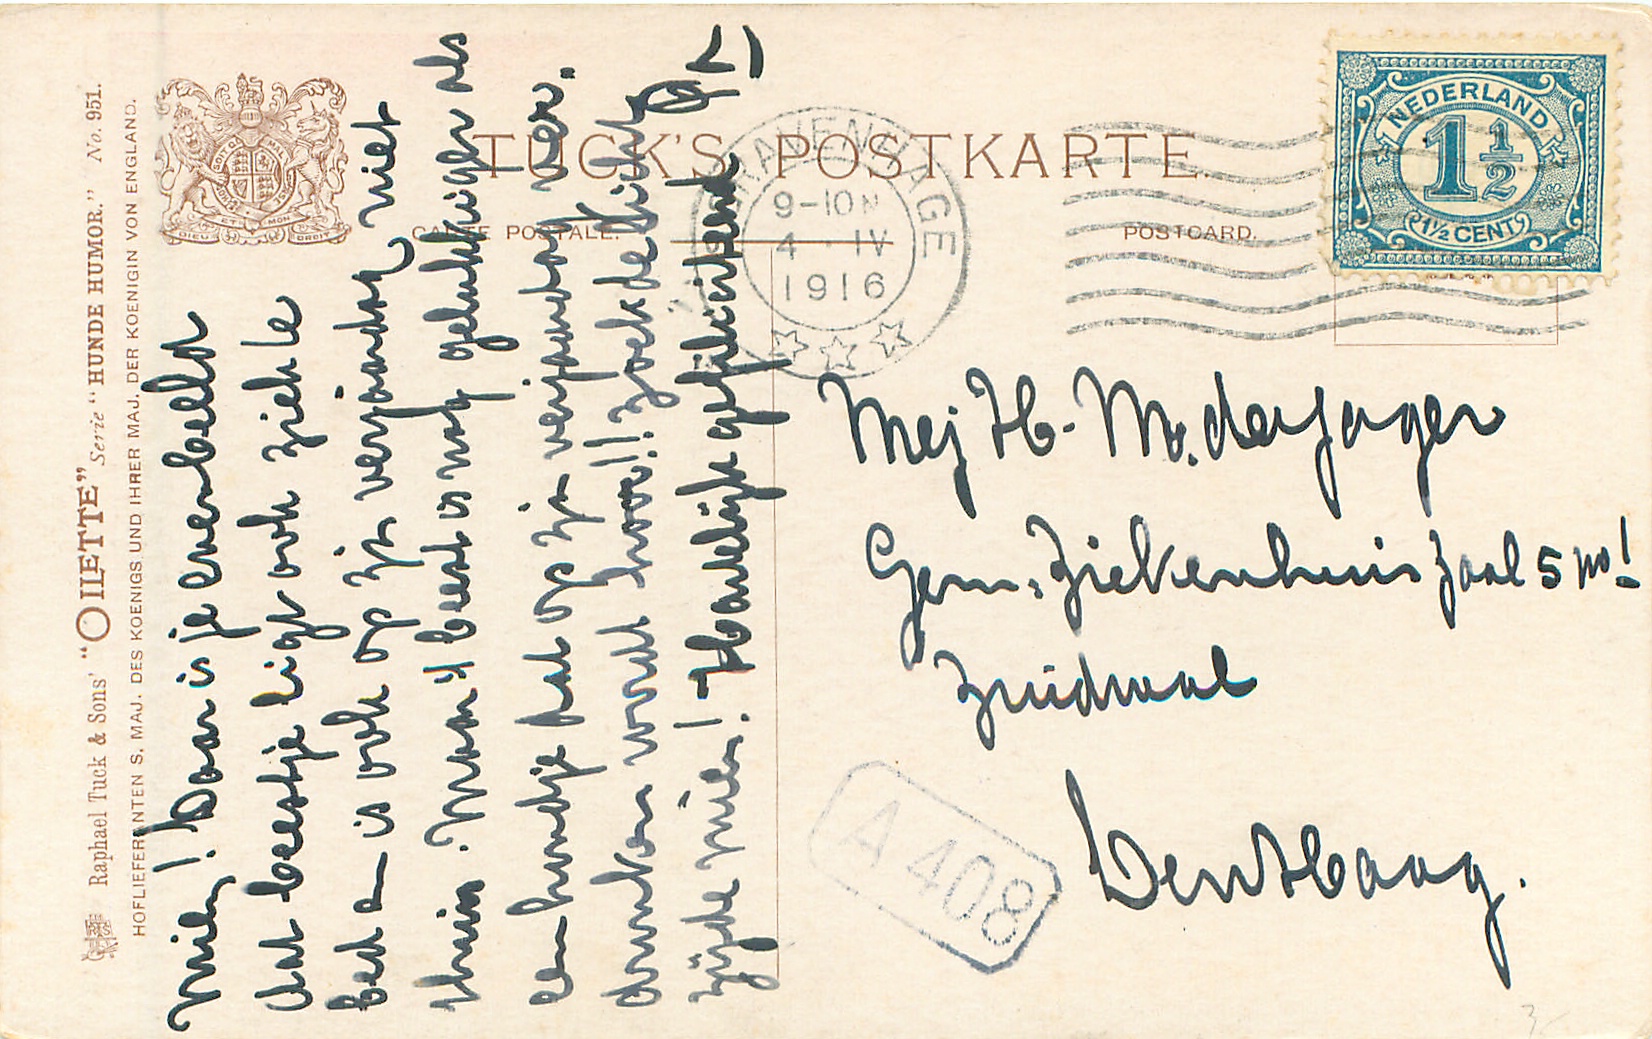 Raphael Tuck & Sons' "OILETTE" Serie "HUNDE HUMOR." No. 951.
HOFLIEFERANTEN S. MAJ. DES KOENIGS UND IHRER MAJ. DER KOENIGIN VON ENGLAND.
DIEU ET MON DROIT
TUCK'S POSTKARTE.
CARTE POSTALE.
POSTCARD.
NEDERLAND
1½
1½ CENT
'S GRAVENHAGE
9-10 N
4 · IV
1916
Mien! Daar is je evenbeeld
dat beestje ligt ook ziek te
bed en is ook op zijn verjaardag niet
thuis. Maar 't beest is nog gelukkiger als
een hondje dat op zijn verjaardag
dronken wordt hoor!! Zoek de
zijde Mien! Hartelijk gefeliciteerd
Mej H. M. de Jager
Gem. Ziekenhuis Zaal 5
Zuidwal
Den Haag.
A 408
3-